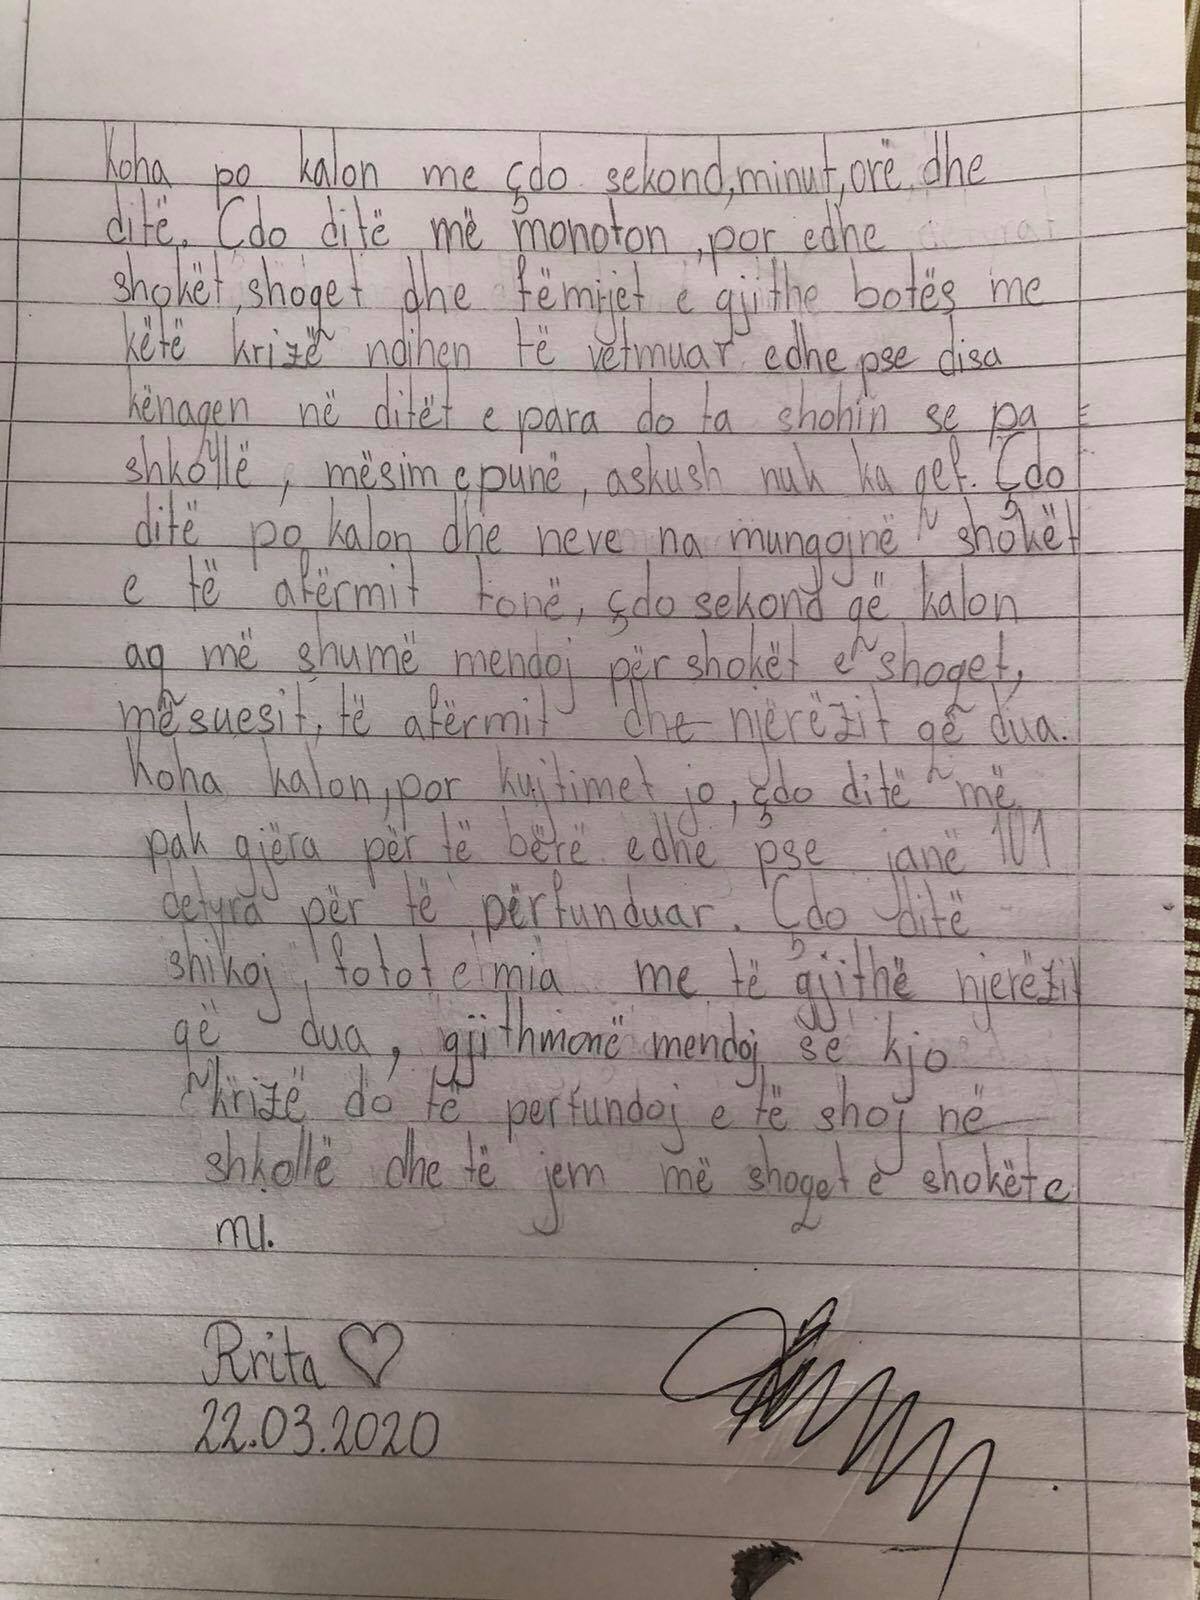 Koha po kalon me çdo sekond,minut,orë dhe
ditë. Çdo ditë më monoton ,por edhe
shokët,shoqet dhe fëmijet e gjithe botës me
këtë krizë ndihen të vetmuar edhe pse disa
kënaqen në ditët e para do ta shohin se pa
shkollë, mësim e punë, askush nuk ka qef. Çdo
ditë po kalon dhe neve na mungojnë shokët
e të afërmit tonë, çdo sekond që kalon
aq më shumë mendoj për shokët e shoqet,
mësuesit, të afërmit dhe njërëzit që dua.
Koha kalon,por kujtimet jo, çdo ditë më
pak gjëra për të bërë edhe pse janë 101
detyra për të përfunduar. Çdo ditë
shikoj fotot e mia me të gjithë njerëzit
që dua, gjithmonë mendoj se kjo
krizë do të perfundoj e të shoj në
shkollë dhe të jem më shoqet e shokët e
mi.
Rrita ♡
22.03.2020